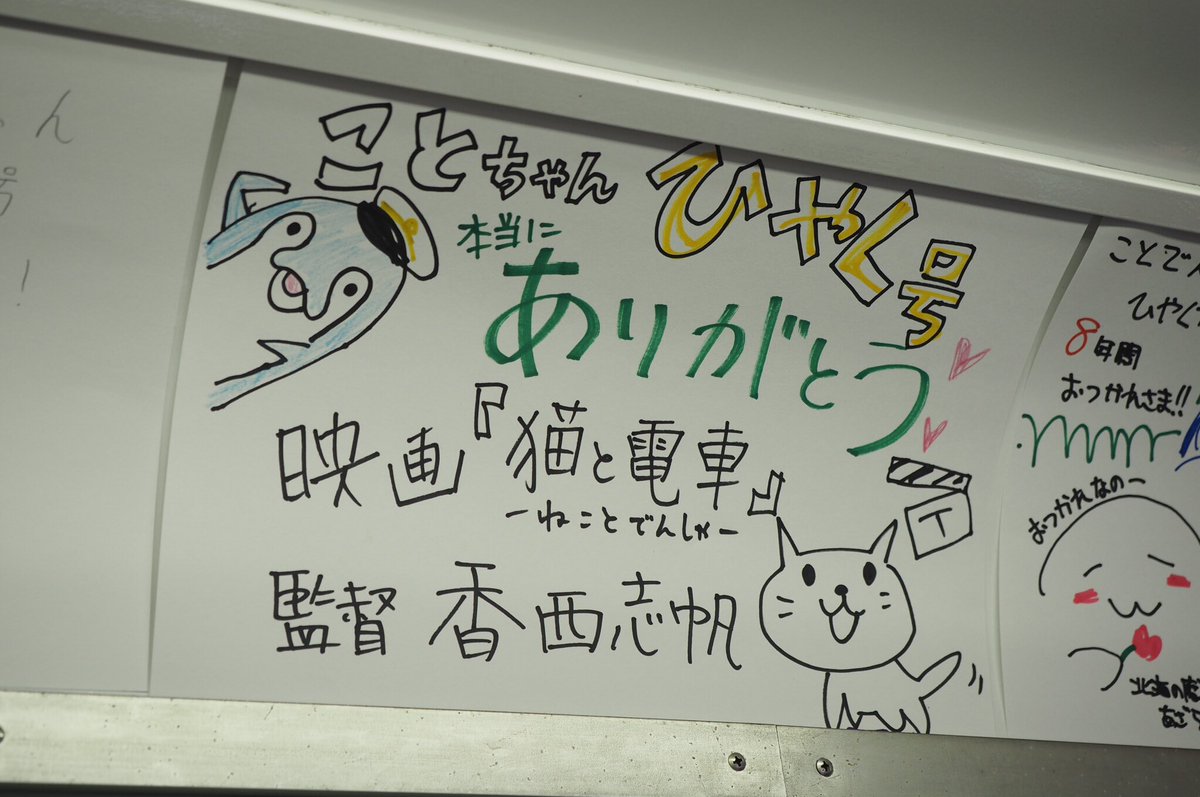 ん
号
!
ことちゃん ひゃく号
本当に
ありがとう
映画『猫と電車』
ーねことでんしゃー
監督 香西志帆
T
ことでん
ひやく
8年間
おつかれさま!!
おつかれなのー